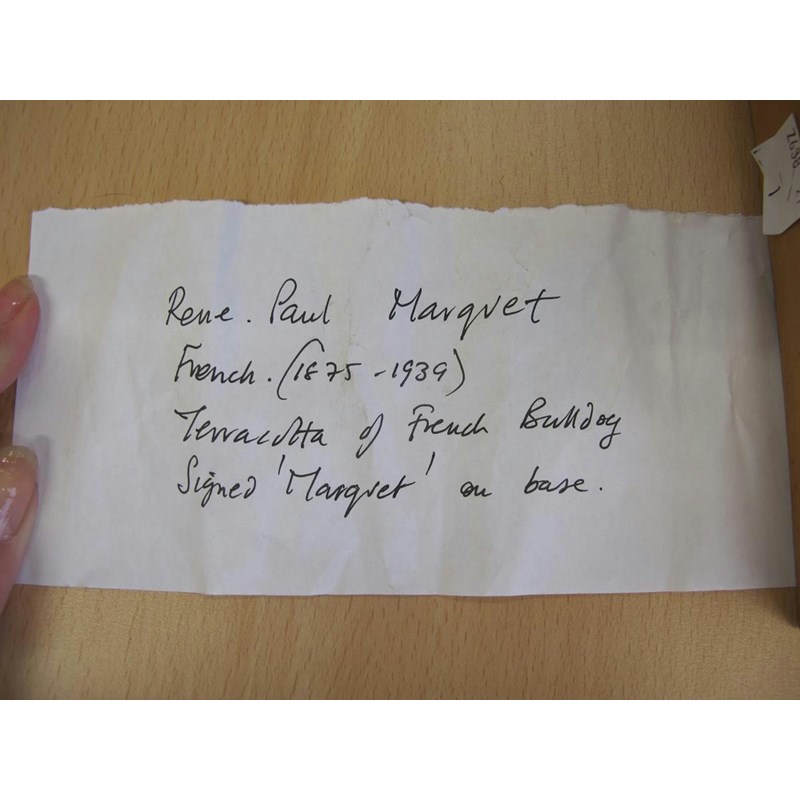 Rene. Paul Marquet
French. (1875-1939)
Terracotta of French Bulldog
Signed 'Marquet' on base.
2698